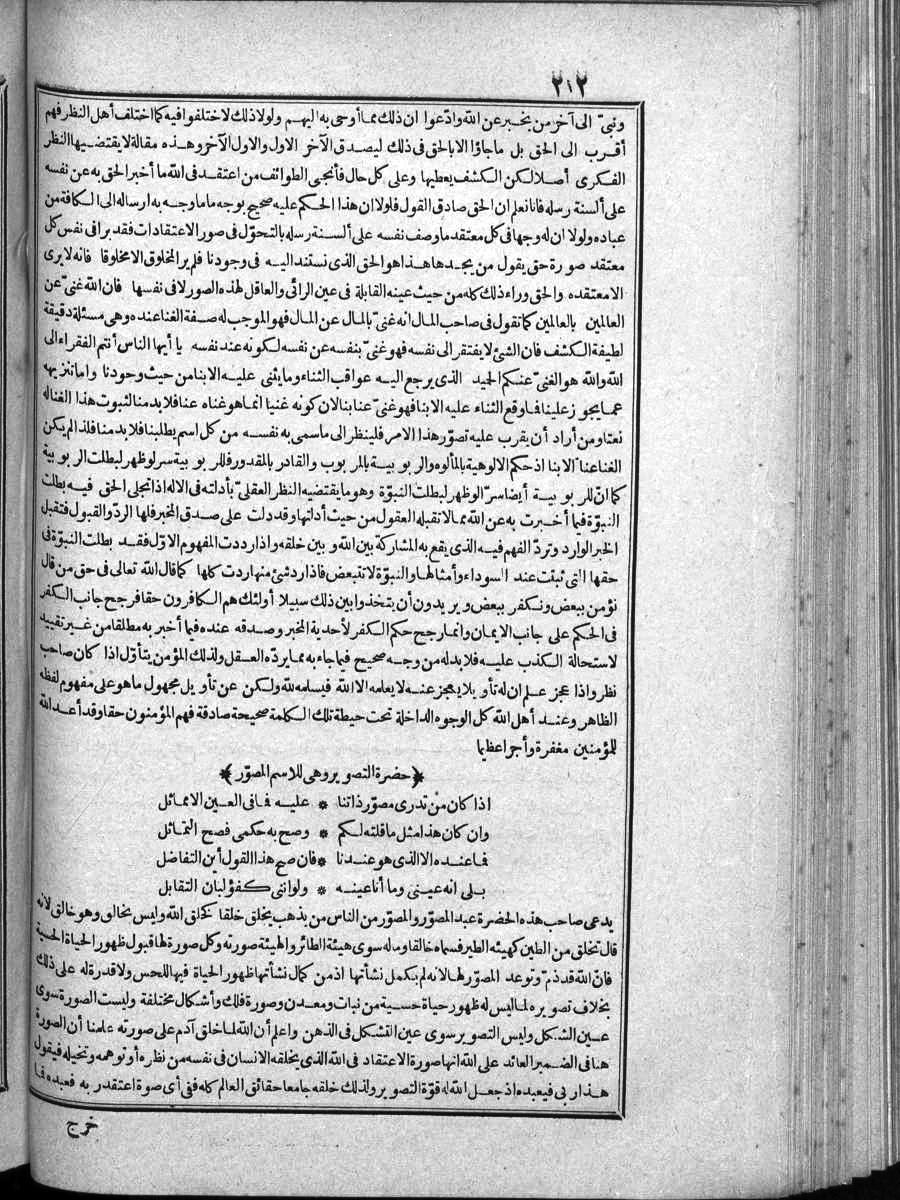 ٢١٢
ونبيّ الى آخر من يخبر عن الله وادّعوا ان ذلك مما أوحى به اليهم ولولا ذلك لاختلفوا فيه كما اختلف أهل النظر فهم
أقرب الى الحق بل ماجاؤا الا بالحق فى ذلك ليصدق الآخر الاول والاول الآخر وهذه مقالة لا يقتضيها النظر
الفكرى أصلا لكن الكشف يعطيها وعلى كل حال فأنجى الطوائف من اعتقد فى الله ما أخبر الحق به عن نفسه
على ألسنة رسله فانا نعلم ان الحق صادق القول فلولا ان هذا الحكم عليه صحيح بوجه ما ما وجه به ارساله الى الكافة من
عباده ولولا ان له وجها فى كل معتقد ما وصف نفسه على ألسنة رسله بالتحوّل فى صور الاعتقادات فقد برا فى نفس كل
معتقد صورة حق يقول من يجدها هذا هو الحق الذى نستند اليه فى وجودنا فلم ير المخلوق الا مخلوقا فانه لا يرى
الا معتقده والحق وراء ذلك كله من حيث عينه القابلة فى عين الرائى والعاقل لهذه الصور لا فى نفسها فان الله غنىّ عن
العالمين بالعالمين كما تقول فى صاحب المال انه غنىّ بالمال عن المال فهو الموجب له صفة الغنا عنده وهى مسئلة دقيقة
لطيفة الكشف فان الشئ لا يفتقر الى نفسه فهو غنىّ بنفسه عن نفسه لكونه عند نفسه يا أيها الناس أنتم الفقراء الى
الله والله هو الغنىّ عنكم الحميد الذى يرجع اليه عواقب الثناء وما يثنى عليه الا بنا من حيث وجودنا واما تنزيهه
عما يجوز علينا فما وقع الثناء عليه الا بنا فهو غنىّ عنا بنا لان كونه غنيا انما هو غناه عنا فلابد منا لثبوت هذا الغنا له
نعتا ومن أراد أن يقرب عليه تصوّر هذا الامر فلينظر الى ما سمى به نفسه من كل اسم يطلبنا فلابد منا فلذا لم يكن
الغنا عنا الا بنا اذ حكم الالوهية بالمألوه والربوبية بالمربوب والقادر بالمقدور فللربوبية سر لو ظهر لبطلت الربوبية
كما انّ للربوبية أيضا سرّ لو ظهر لبطلت النبوّة وهو ما يقتضيه النظر العقلىّ بأدلته فى الاله اذا تجلى الحق فيه بطلت
النبوّة فيما أخبرت به عن الله مما لا تقبله العقول من حيث أدلتها وقد دلت على صدق المخبر فلها الردّ والقبول فتقبل
الخبر الوارد وتردّ الفهم فيه الذى يقع به المشاركة بين الله و بين خلقه واذا رددت المفهوم الاوّل فقد بطلت النبوّة فى
حقها التى ثبتت عند السوداء وأمثالها والنبوّة لا تتبعض فاذا رد شئ منها ردت كلها كما قال الله تعالى فى حق من قال
نؤمن ببعض ونكفر ببعض ويريدون أن يتخذوا بين ذلك سبيلا أولئك هم الكافرون حقا فرجح جانب الكفر
فى الحكم على جانب الايمان وانما رجح حكم الكفر لأحدية المخبر وصدقه عنده فيما أخبر به مطلقا من غير تقييد
لاستحالة الكذب عليه فلابد له من وجه صحيح فيما جاء به مما يردّه العقل ولذلك المؤمن يتأوّل اذا كان صاحب
نظر واذا عجز علم ان له تأويلا يعجز عنه لا يعلمه الا الله فيسلمه لله ولكن عن تأويل مجهول ما هو على مفهوم لفظه
الظاهر وعند أهل الله كل الوجوه الداخلة تحت حيطة تلك الكلمة صحيحة صادقة فهم المؤمنون حقا وقد أعد الله
للمؤمنين مغفرة وأجرا عظيما
﴿حضرة التصوير وهى للاسم المصوّر﴾
اذا كان من تدرى مصوّر ذاتنا * عليه فما فى العين الا مماثل
وان كان هذا مثل ما قلته لكم * وصح به حكمى فصح التماثل
فما عنده الا الذى هو عندنا * فان صح هذا القول أين التفاضل
بلى انه عينى وما أنا عينه * ولو اننى كفؤ لبان التقابل
يدعى صاحب هذه الحضرة عبد المصوّر والمصوّر من الناس من يذهب يخلق خلقا كخلق الله وليس بخالق وهو خالق لانه
قال تخلق من الطين كهيئة الطير فسماه خالقا وما له سوى هيئة الطائر والهيئة صورته وكل صورة لها قبول ظهور الحياة الحسية
فانّ الله قد ذمّ وتوعد المصوّر لها لانه لم يكمل نشأتها اذ من كمال نشأتها ظهور الحياة فيها للحس ولا قدرة له على ذلك
بخلاف تصويره لما ليس له ظهور حياة حسية من نبات ومعدن وصورة فلك وأشكال مختلفة وليست الصورة سوى
عين الشكل وليس التصوير سوى عين التشكل فى الذهن واعلم أن الله لما خلق آدم على صورته علمنا أن الصورة
هنا فى الضمير العائد على الله انها صورة الاعتقاد فى الله الذى يخلقه الانسان فى نفسه من نظره أو توهمه وتخيله فيقول
هذا ربى فيعبده اذ جعل الله له قوّة التصوير ولذلك خلقه جامعا حقائق العالم كله ففى أى صوة اعتقد ربه فعبده فما
خرج